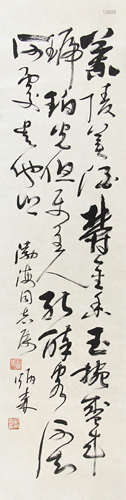 蘭陵美酒鬱金香玉椀盛來
琥珀光但使主人能醉客不知
何處是他鄉
渤海同志屬
炳森